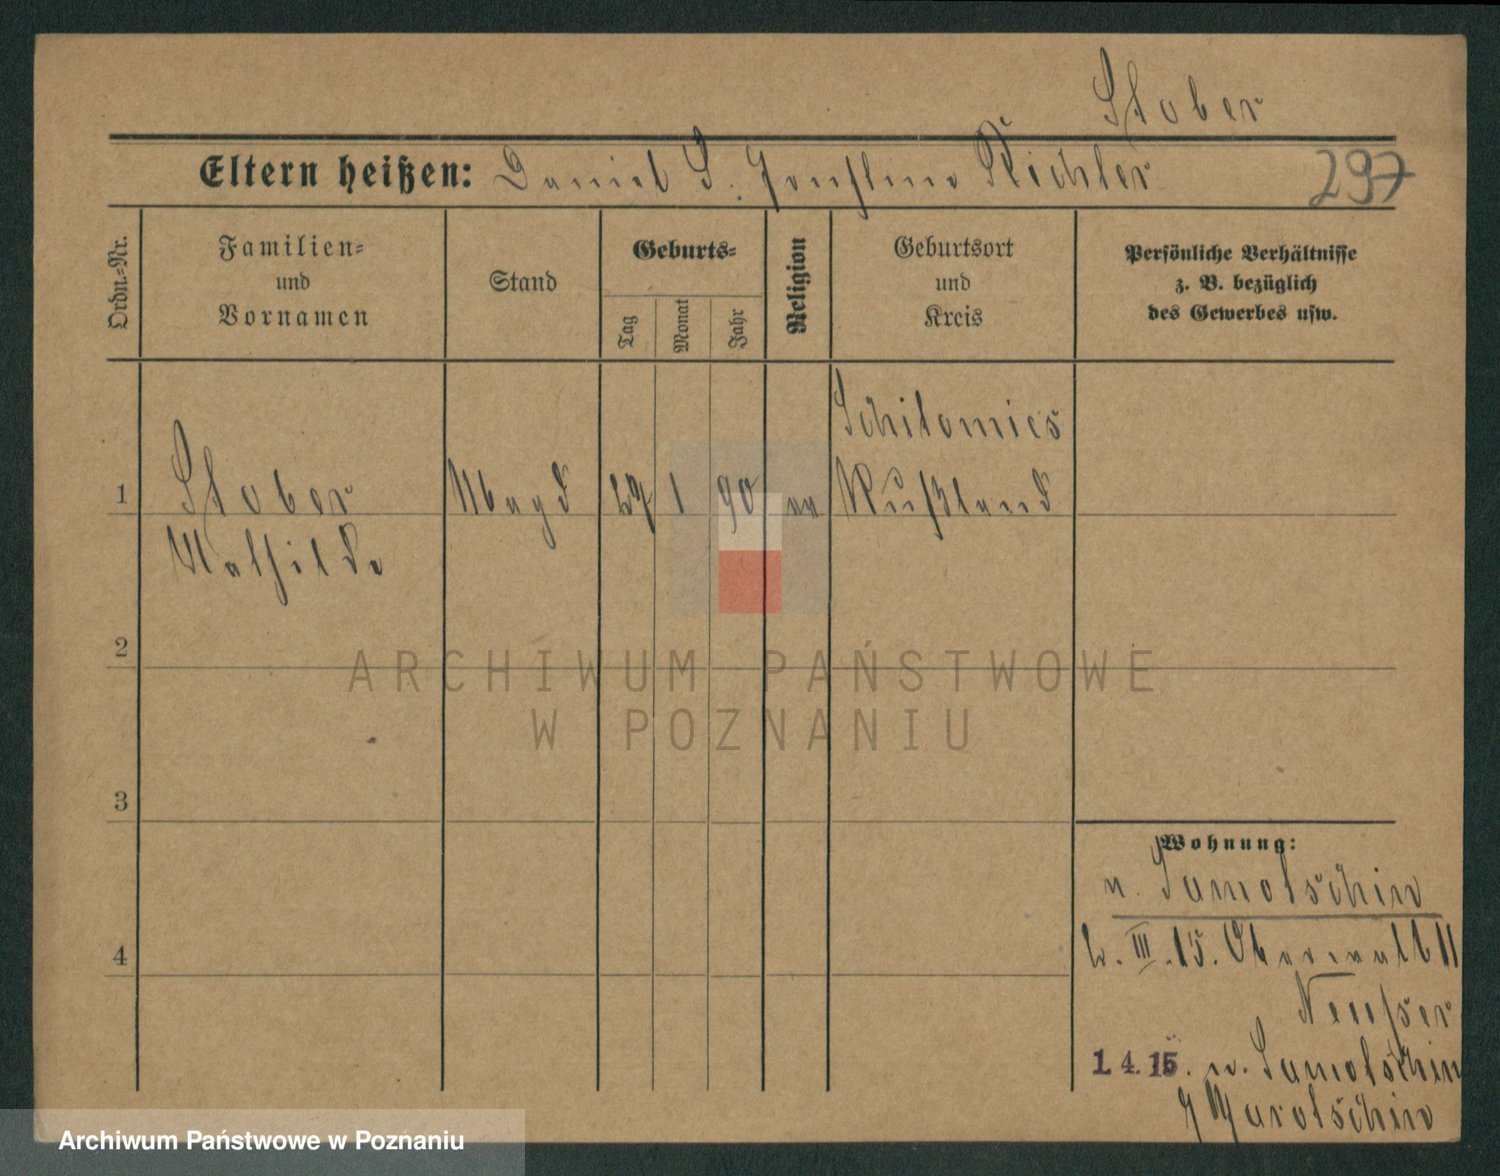 Stober
Eltern heißen: Daniel S. Richter
297
Ordn.=Nr.
Familien=
und
Vornamen
Stand
Geburts=
Tag
Monat
Jahr
Religion
Geburtsort
und
Kreis
Persönliche Verhältnisse
z. B. bezüglich
des Gewerbes usw.
Schitomies
1 Stober Magd 27 1 90 Rußland
Mathilde
2
3
4
ARCHIWUM PAŃSTWOWE
W POZNANIU
Wohnung:
n. Samotschin
2. III. 15. Oberwall 11
1. 4. 15. n. Samotschin
Archiwum Państwowe w Poznaniu